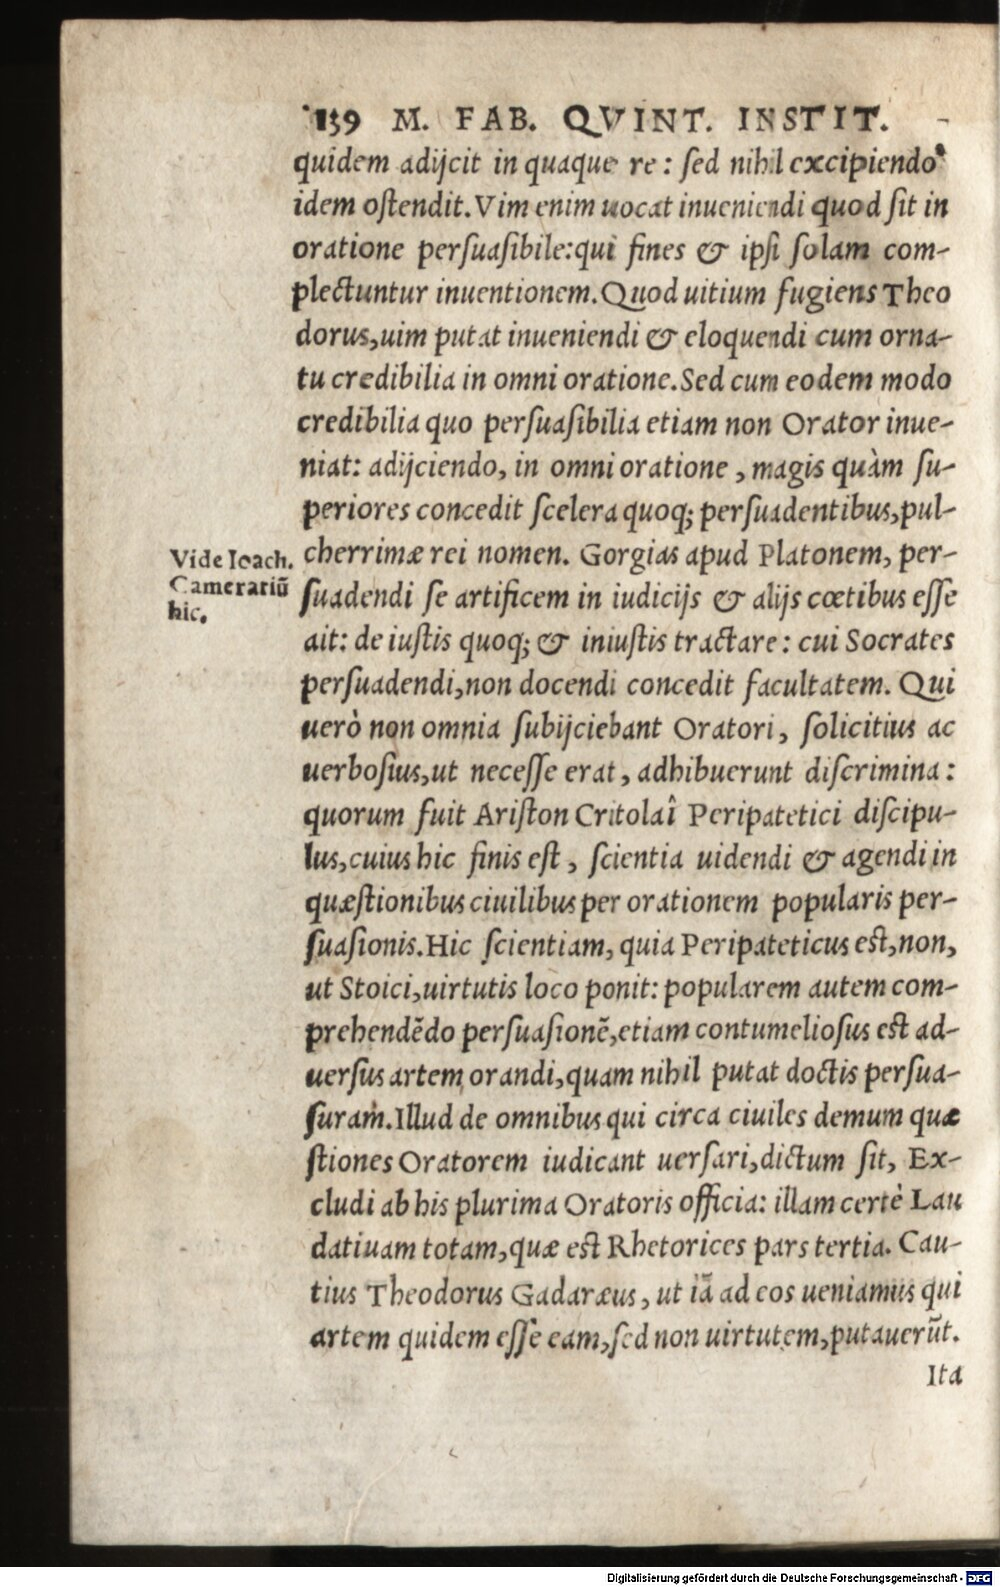 139 M. FAB. QVINT. INSTIT.
quidem adijcit in quaque re: sed nihil excipiendo
idem ostendit. Vim enim uocat inueniendi quod sit in
oratione persuasibile: qui fines & ipsi solam com-
plectuntur inuentionem. Quod uitium fugiens Theo
dorus, uim putat inueniendi & eloquendi cum orna-
tu credibilia in omni oratione. Sed cum eodem modo
credibilia quo persuasibilia etiam non Orator inue-
niat: adijciendo, in omni oratione, magis quàm su-
periores concedit scelera quoq; persuadentibus, pul-
cherrimæ rei nomen. Gorgias apud Platonem, per-
suadendi se artificem in iudicijs & alijs cœtibus esse
ait: de iustis quoq; & iniustis tractare: cui Socrates
persuadendi, non docendi concedit facultatem. Qui
uerò non omnia subijciebant Oratori, solicitius ac
uerbosius, ut necesse erat, adhibuerunt discrimina:
quorum fuit Ariston Critolaî Peripatetici discipu-
lus, cuius hic finis est, scientia uidendi & agendi in
quæstionibus ciuilibus per orationem popularis per-
suasionis. Hic scientiam, quia Peripateticus est, non,
ut Stoici, uirtutis loco ponit: popularem autem com-
prehendẽdo persuasionẽ, etiam contumeliosus est ad-
uersus artem orandi, quam nihil putat doctis persua-
suram. Illud de omnibus qui circa ciuiles demum quæ
stiones Oratorem iudicant uersari, dictum sit, Ex-
cludi ab his plurima Oratoris officia: illam certè Lau
datiuam totam, quæ est Rhetorices pars tertia. Cau-
tius Theodorus Gadaræus, ut iã ad eos ueniamus qui
artem quidem esse eam, sed non uirtutem, putauerũt.
Ita
Vide Ioach.
Camerariũ
hic.
Digitalisierung gefördert durch die Deutsche Forschungsgemeinschaft - DFG